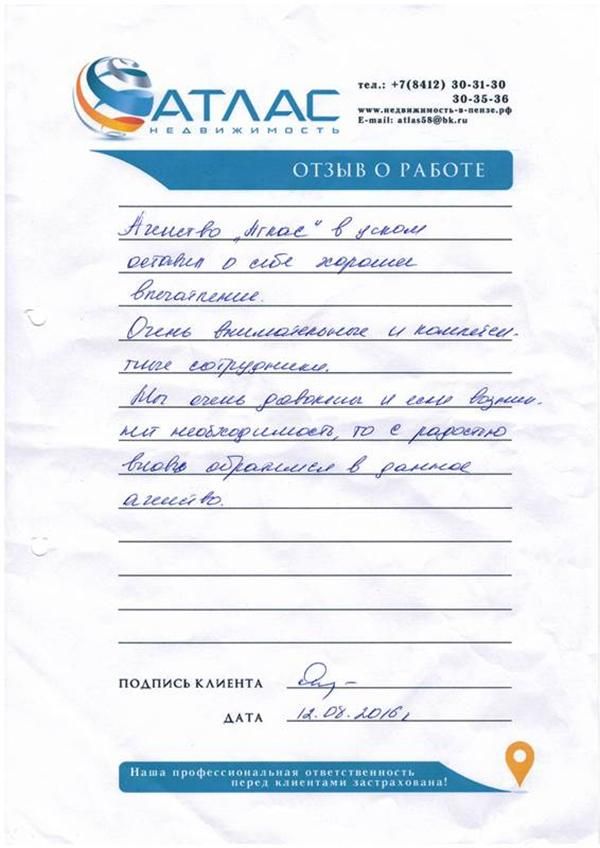 АТЛАС
НЕДВИЖИМОСТЬ
тел.: +7(8412) 30-31-30
30-35-36
www.недвижимость-в-пензе.рф
E-mail: atlas58@bk.ru
ОТЗЫВ О РАБОТЕ
Агенство „Атлас“ в целом
оставил о себе хорошее
впечатление.
Очень внимательные и компетен-
тные сотрудники.
Мы очень довольны и если возник-
нит необходимость, то с радостью
вновь обратимся в данное
агенство.
ПОДПИСЬ КЛИЕНТА
ДАТА 12.08.2016г
Наша профессиональная ответственность
перед клиентами застрахована!